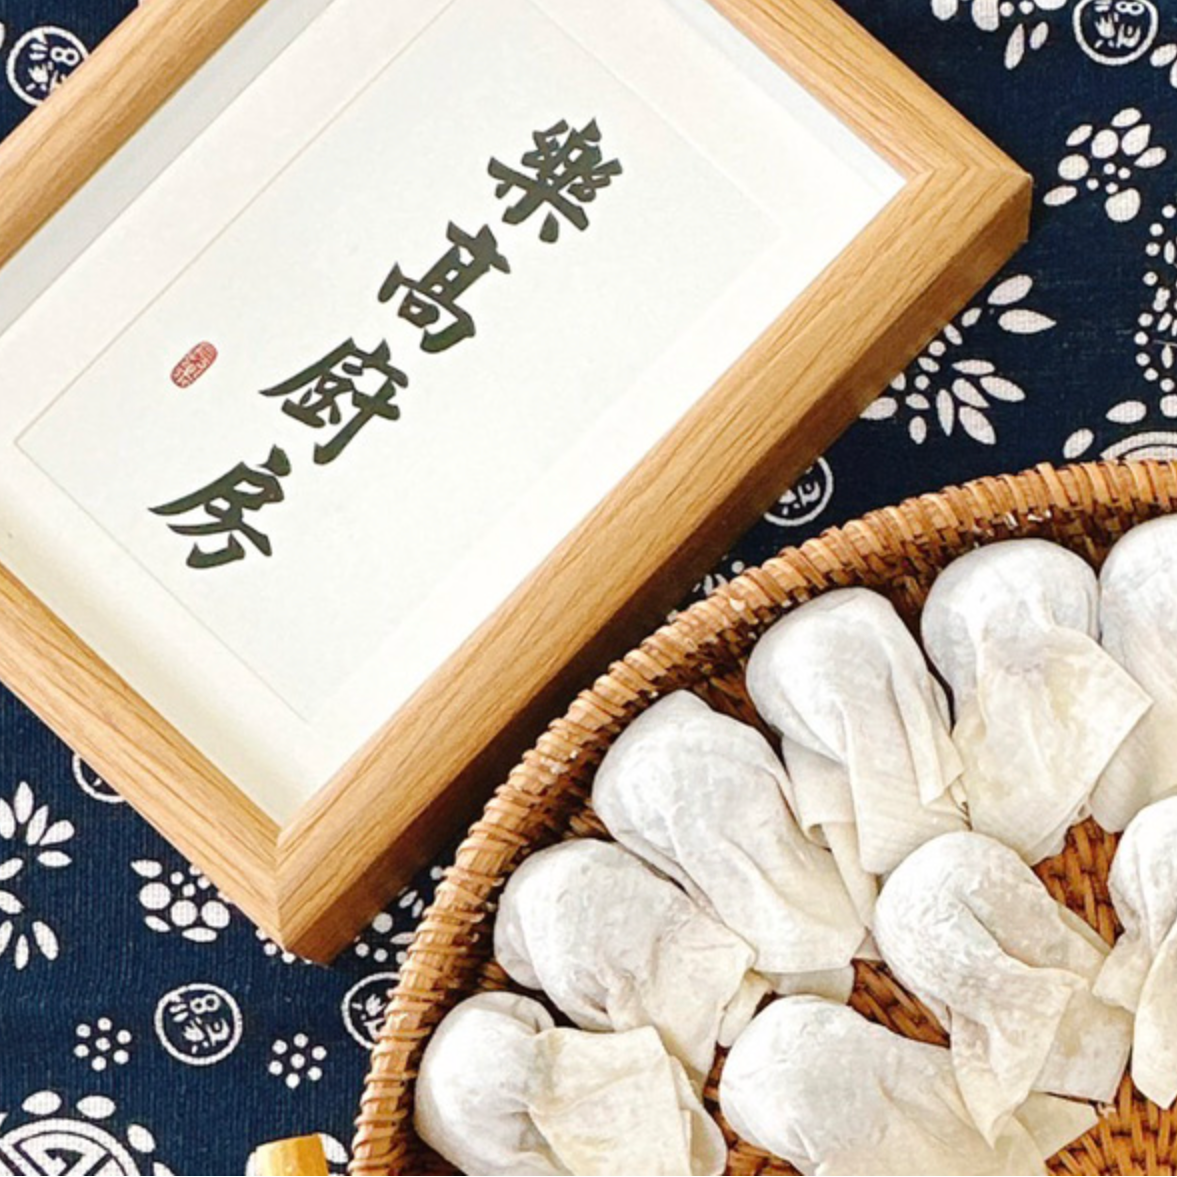 樂高廚房